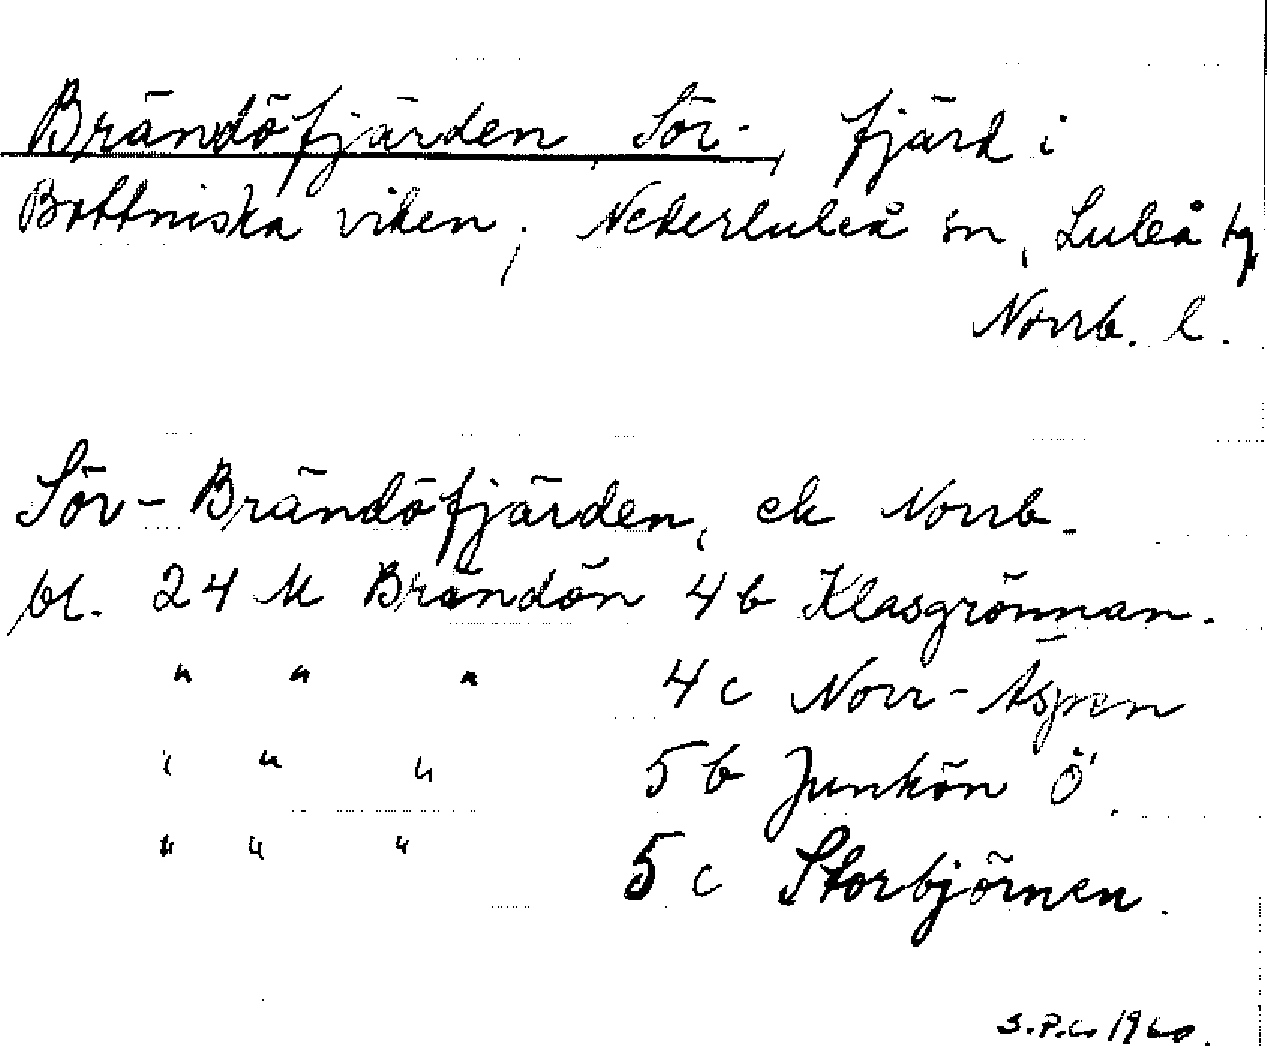 Brändöfjärden, Sör-, fjärd i
Bottniska viken, Nederluleå sn, Luleå tg,
Norrb. l.
Sör-Brändöfjärden, ek Norrb.
bl. 24 M Brändön 4 b Klasgrönnan.
" " " 4 c Norr-Äspen
" " " 5 b Junkön Ö.
" " " 5 c Storbjörnen.
1960.